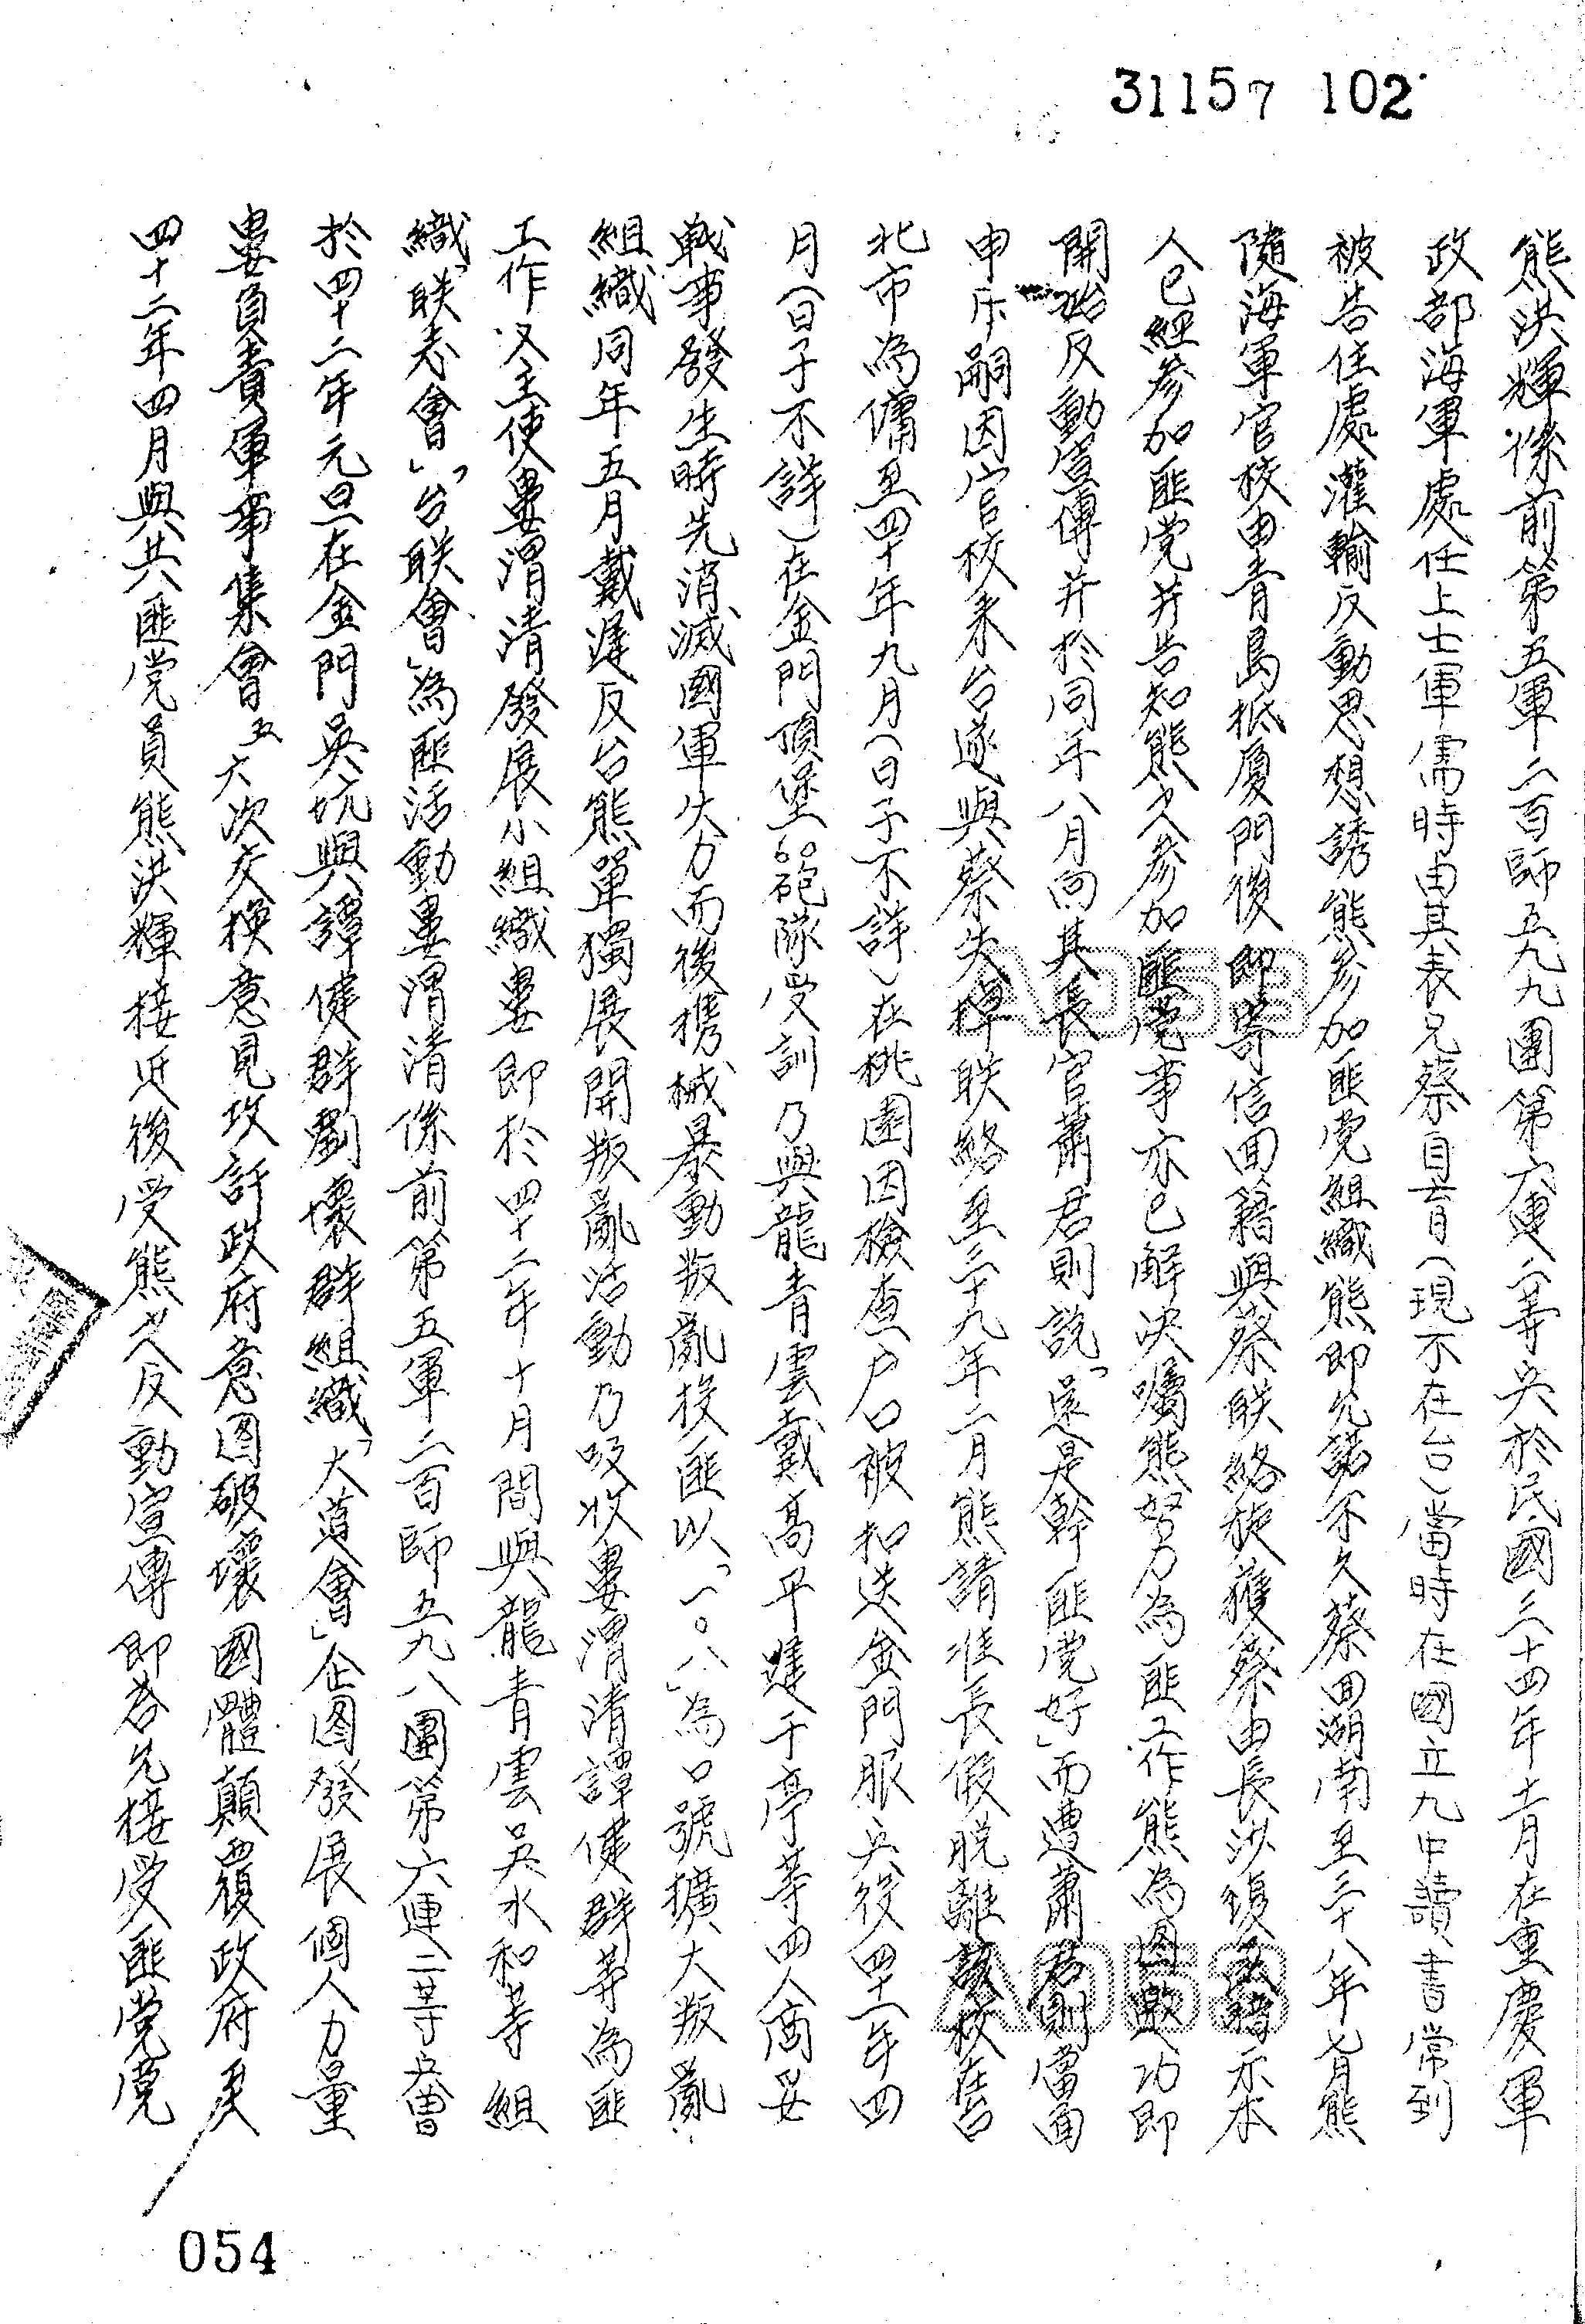 31157 102
熊洪輝係前第五軍二百師五九九團第六連二等兵於民國三十四年十一月在重慶軍
政部海軍處任上士軍需時由其表兄蔡自育(現不在台)當時在國立九中讀書常到
被告住處灌輸反動思想誘熊參加匪党組織熊即允諾不久蔡回湖南至三十八年七月熊
隨海軍官校由青島抵厦門後即寄信回籍與蔡联絡旋獲蔡由長沙復函稱亦本
人已經參加匪党并告知熊之參加匪党事亦已解决囑熊努力為匪工作熊為图邀功即
開始反動宣傳并於同年八月向其長官蕭君則説「還是幹匪党好」而遭蕭君則當面
申斥嗣因官校来台遂與蔡失掉联絡至三十九年二月熊請准長假脱離該校在台
北市為傭至四十年九月(日子不詳)在桃園因檢查户口被扣送金門服兵役四十一年四
月(日子不詳)在金門頂堡60砲隊受訓乃與龍青雲戴高平遲千亭等四人商妥
戰事發生時先消滅國軍火力而後携械暴動叛亂投匪以「一〇八」為口號擴大叛亂
組織同年五月戴遲反台熊單獨展開叛亂活動乃吸收婁渭清譚健群等為匪
工作又主使婁渭清發展小組織婁即於四十二年十月間與龍青雲吳水和等組
織「联志會」「台联會」為匪活動婁渭清係前第五軍二百師五九八團第六連二等兵曾
於四十二年元旦在金門吳坑與譚健群劉壞群組織「大道會」企图發展個人力量
婁負責軍事集會五六次交换意見攻訐政府意图破壞國體顛覆政府更
四十二年四月與共匪党員熊洪輝接近後受熊之反動宣傳即答允接受匪党党
054
A053
A053